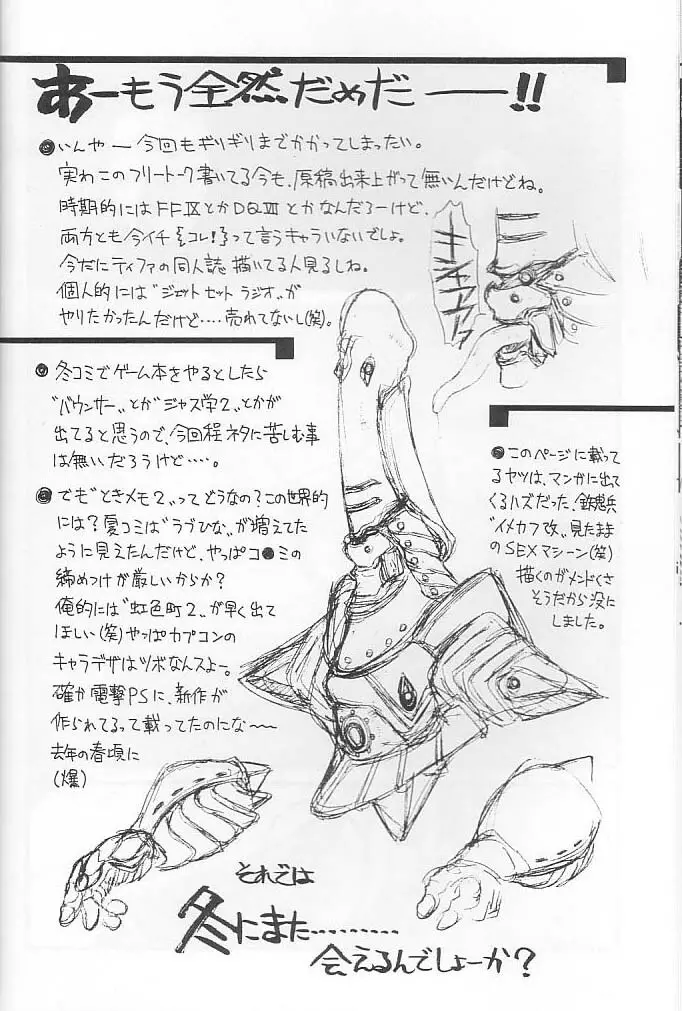 あーもう全然だめだ――!!
◎いんやー今回もギリギリまでかかってしまったい。
実わこのフリートーク書いてる今も、原稿出来上がって無いんだけどね。
時期的にはFFⅨとかDQⅦとかなんだろーけど、
両方とも今イチ{コレ!}って言うキャラいないでしょ。
今だにティファの同人誌描いてる人見るしね。
個人的には〝ジェットセットラジオ〟が
やりたかったんだけど‥‥売れてないし(笑)。
◎冬コミでゲーム本をやるとしたら
〝バウンサー〟とか〝ジャス学2〟とかが
出てると思うので、今回程ネタに苦しむ事
は無いだろうけど‥‥。
◎でも〝ときメモ2〟ってどうなの?この世界的
には?夏コミは〝ラブひな〟が増えてた
ように見えたんだけど、やっぱコ●ミの
締めつけが厳しいからか?
俺的には〝虹色町2〟が早く出て
ほしい(笑)やっぱカプコンの
キャラデザはツボなんスよー。
確か電撃PSに、新作が
作られてるって載ってたのにな〜〜
去年の春頃に
(爆)
●このページに載って
るヤツは、マンガに出て
くるハズだった、鉄騎兵
〝イメカフ改〟見たまま
のSEXマシーン(笑)
描くのがメンドくさ
そうだから没に
しました。
それでは
冬にまた‥‥‥‥‥
会えるんでしょーか?